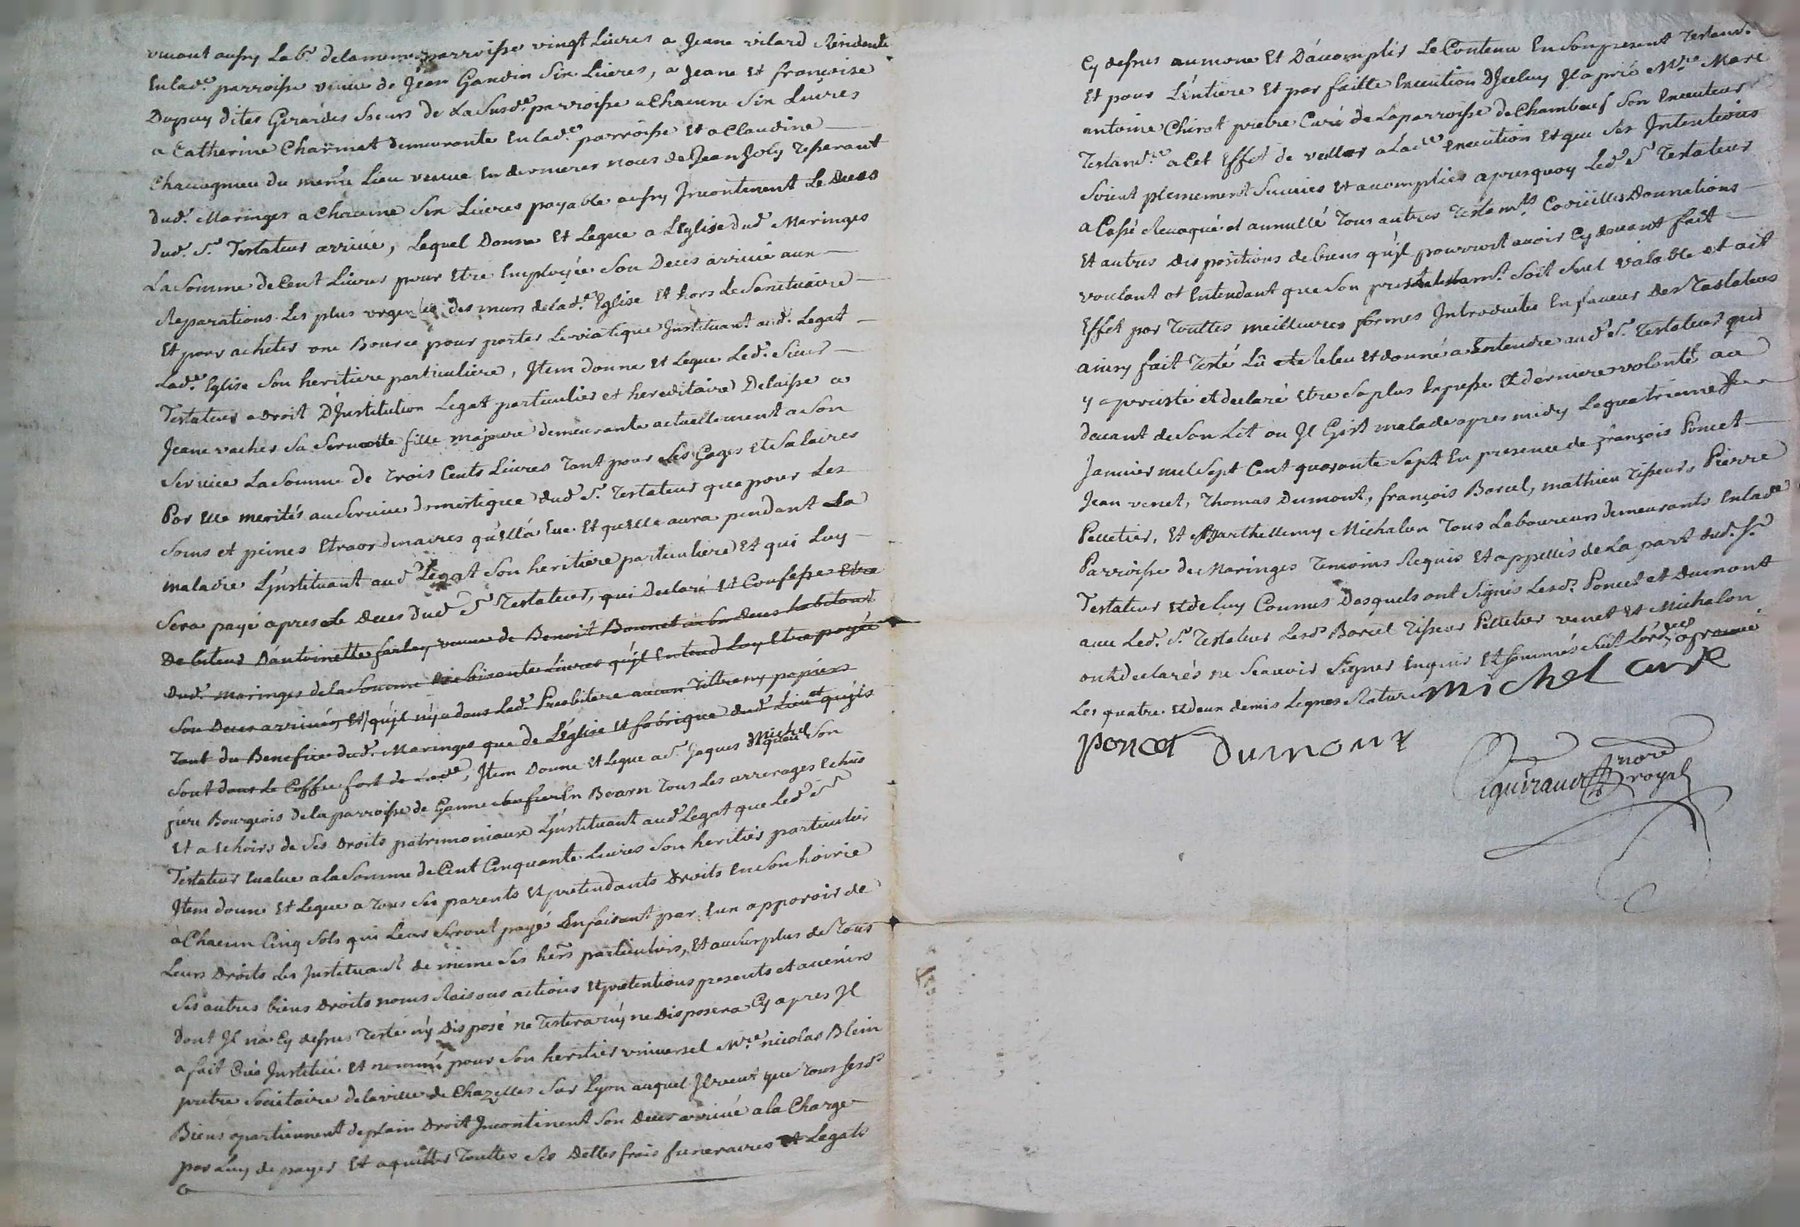 vivant aussy Lab.r delameme parroisse vingt Livres a Jeane vilard Residente
Enlad.e parroisse veuve de Jean Gandin Six Livres, a Jeane Et françoise
Dupuy dites Gerardes Soeurs de La Susd.e parroisse a Chacune Six Livres
a Catherine Charmet demeurante Enlad.e parroisse Et a Claudine
du meme Lieu veuve En dernieres noces de Jean Joly Tisserant
dud.t Maringes a Chacune Six Livres payable aussy Incontinent Le Deces
dud. S.r Testateur arrivé, Lequel Donne Et Legue a L'Eglise dud. Maringes
La Somme de Cent Livres pour Etre Employée Son Deces arrivé aux
Reparations Les plus urgentes des murs delad.e Eglise Et hors Le Sanctuaire
Et pour acheter une Bource pour porter Le viatique Instituant aud. Legat
Lad.e Eglise Son heritiere particuliere, Item donne Et Legue Led. Sieur
Testateur a Droit D'Institution Legat particulier et hereditaire Delaisse a
Jeane vacher Sa Servante fille majeure demeurante actuellement a Son
Service La Somme de Trois Cents Livres Tant pour Ses Gages Et Salaires
Par Elle merités au Service domestique dud. S.r Testateur que pour Les
Soins et peines Etraordinaires qu'Ell'a Eue Et qu'Elle aura pendant La
maladie L'instituant aud. Legat Son heritiere particuliere Et qui Luy
Sera payé apres Le Deces dud. S.r Testateur, qui Declare Et Confesse Etre
Debiteur D'antoinette farley veuve de Benoit Bonnet habitant
dud. Maringes de la Somme de Soisante Livres qu'il Entend Luy Etre payée
Son Deces arrivé, Et qu'il n'y a dans Lad. Presbitere aucun Tiltre ny papiers
Tant du Benefice dud. Maringes que de L'Eglise Et fabrique dud. Lieu et qu'ils
Sont dans Le Coffre fort de Lad.e, Item Donne Et Legue a S.r Jaques Michel Son
frere Bourgeois de la parroisse de En Bearn Tous Les arrerages Echus
Et a Echoirs de Ses Droits patrimoniaux L'instituant aud. Legat que Led. S.r
Testateur Evalue a la Somme de Cent Cinquante Livres Son heritier particulier
Item donne Et Legue a Tous Ses parents Et pretendants Droits En Son hoirie
a Chacun Cinq Sols qui Leur Seront payé Enfaisant par Eux apparoir de
Leurs Droits Les Instituant de meme Ses hers particuliers, Et au Surplus de Tous
Ses autres biens Droits noms Raisons actions Et pretentions presents et avenirs
Dont Il n'a Cy dessus Testé n'y Disposé ne Testera n'y ne Disposera Cy apres Il
a fait Créé Institué Et nommé pour Son heritier universel M.re nicolas Blein
pretre Socitaire delaville de Chazelles Sur Lyon auquel Il veut que Tous Sesd.
Biens apartiennent deplain Droit Incontinent Son Deces arrivé a la Charge
par Luy de payer Et aquitter Touttes Ses Dettes frais funeraires Et Legats
Cy dessus aumone Et D'acomplir Le Contenu En Son present Testam.t
Et pour L'entiere Et parfaitte Execution D'Iceluy Il a prié M.re Marc
antoine Chirat pretre Curé de La parroisse de Chambœuf Son Executeur
Testam.re a Cet Effet de veiller a Lad.e Execution Et que Ses Intentions
Soient pleinement Suivies Et accomplies apresquoy Led. S.r Testateur
a Cassé Revoqué et annullé Tous autres Testam.ts Codicilles Donnations
Et autres dispositions de biens qu'il pourroit avoir Cy devant fait
voulant et Entendant que Son present Testam.t Soit Seul valable et ait
Effet par Touttes meilleures formes Introduites En faveur Des Testateurs
ainsy fait Testé Lû et releu Et donné a Entendre aud. S.r Testateur qui
y a persisté et declaré Etre Sa plus Expresse Et derniere volonté au
devant de Son Lit ou Il Gist malade apres midy Le quatrieme
Janvier mil Sept Cent quarante Sept En presence de françois Poncet
Jean venet, Thomas Dumont, françois Barcel, mathieu Tisseur, Pierre
Pelletier, Et Barthellemy Michalon Tous Laboureurs demeurants Enlad.e
Parroisse de Maringes Temoins Requis Et appellés de La part dud. S.r
Testateur Et de Luy Connus Desquels ont Signés Lesd. Poncet et Dumont
avec Led. S.r Testateur Lesd. Barcel Tisseur Pelletier venet Et Michalon
ont declarés ne Scavoir Signer Enquis Et Sommés
Les quatre Et deux demis Lignes Rature Michel curé
poncet Dumont
guiraud no.re royal